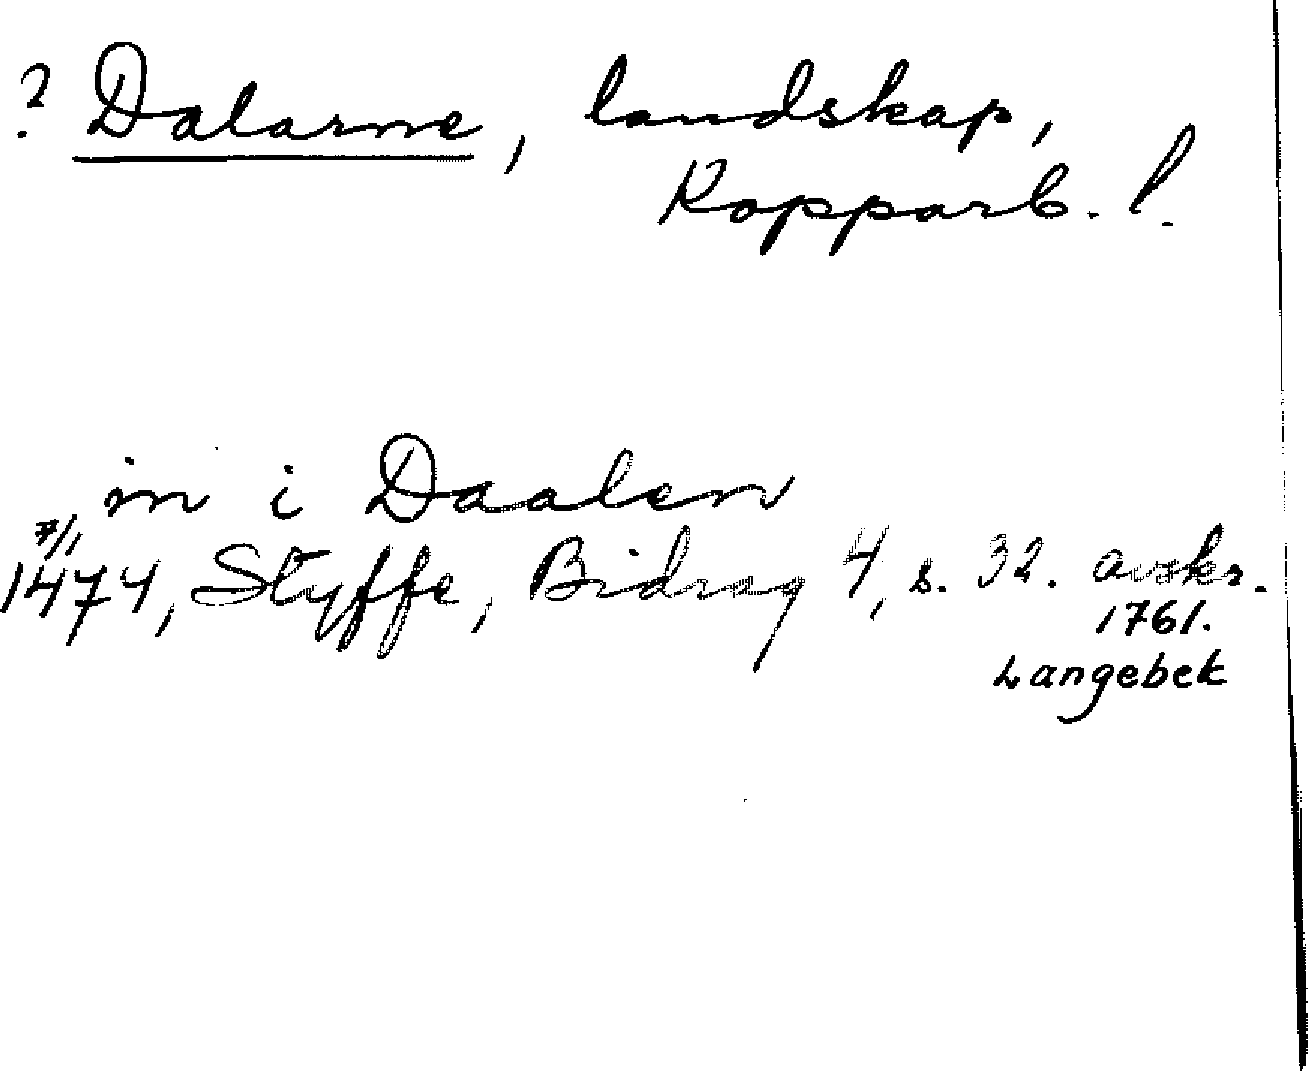 ? Dalarne, landskap,
Kopparb. l.
in i Daalen
7/1
1474, Styffe, Bidrag 4, s. 32. avskr.
1761.
Langebek